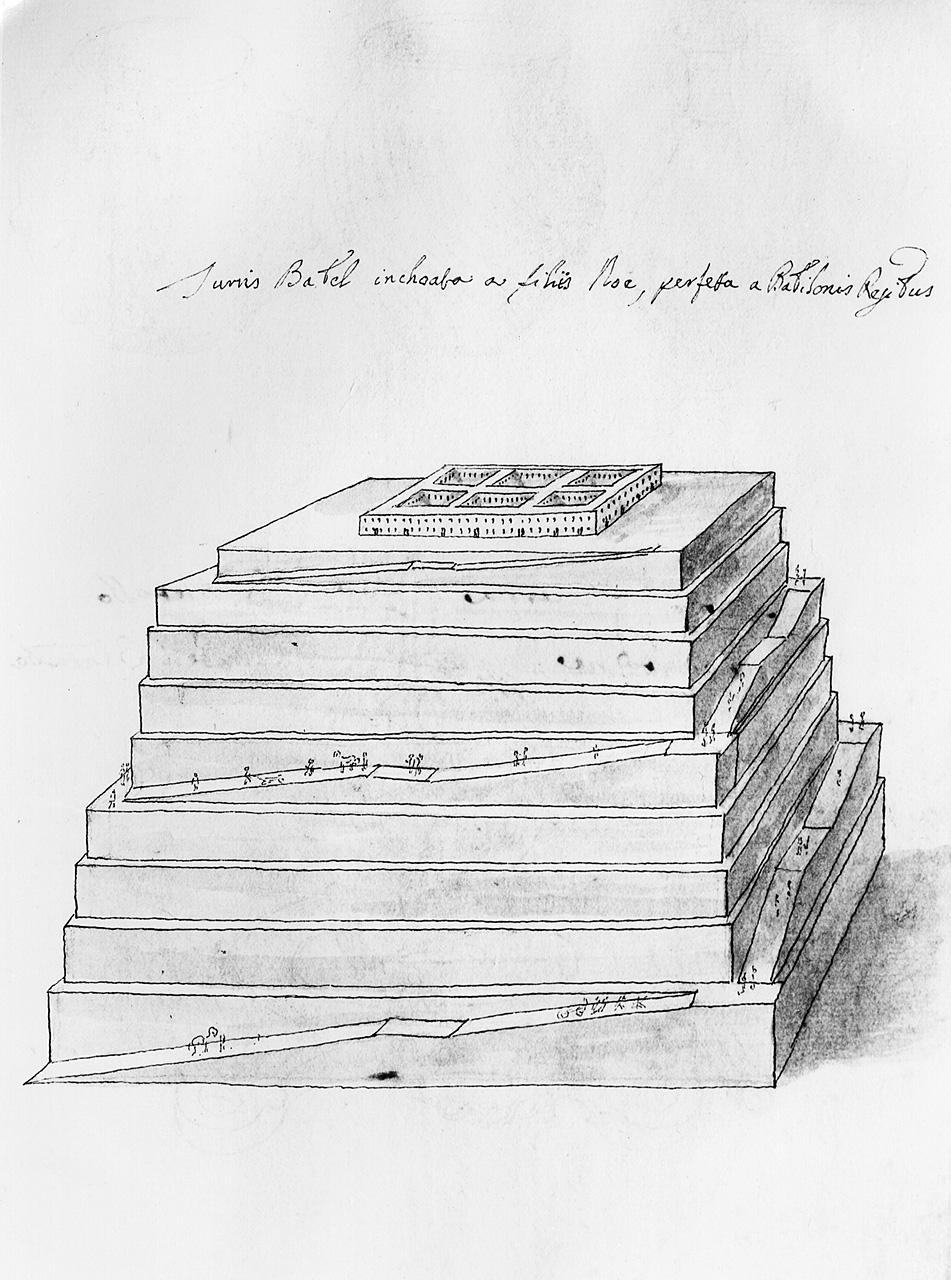 Turris Babel inchoata a filiis Noe, perfetta a Babilonis Regibus